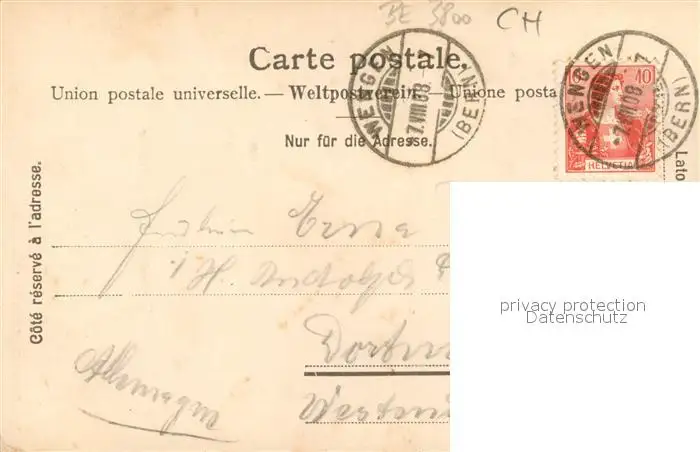 BE 3800 CH
Carte postale.
Union postale universelle. — Weltpostverein. — Unione posta
Nur für die Adresse.
WENGEN
7.VIII.08
(BERN)
WENGEN
7.VIII.08
(BERN)
10
HELVETIA
Lato
Côté réservé à l'adresse.
Fräulein Erna
Dortm
Allemagne
Westn
privacy protection
Datenschutz